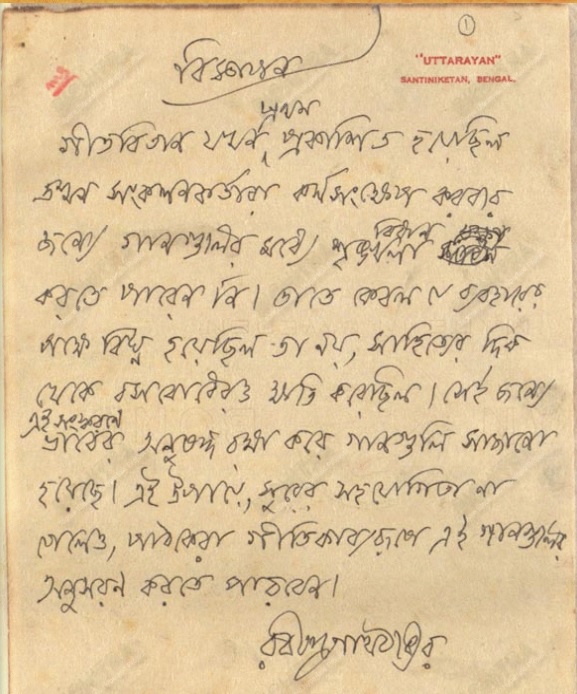 ①
"UTTARAYAN"
SANTINIKETAN, BENGAL.
বিজ্ঞাপন
প্রথম
গীতবিতান যখন প্রকাশিত হয়েছিল
তখন সংকলনকর্তারা কর্মসংক্ষেপ করবার
জন্যে গানগুলির মধ্যে শৃঙ্খলা বিধান
করতে পারেন নি। তাতে কেবল যে ব্যবহারের
পক্ষে বিঘ্ন হয়েছিল তা নয়, সাহিত্যের দিক
থেকে রসবোধেরও ক্ষতি করেছিল। সেই জন্যে
এই সংস্করণে
ভাবের অনুষঙ্গ রক্ষা করে গানগুলি সাজানো
হয়েছে। এই উপায়ে, সুরের সহযোগিতা না
পেলেও, পাঠকেরা গীতিকাব্যরূপে এই গানগুলির
অনুসরণ করতে পারবেন।
রবীন্দ্রনাথ ঠাকুর